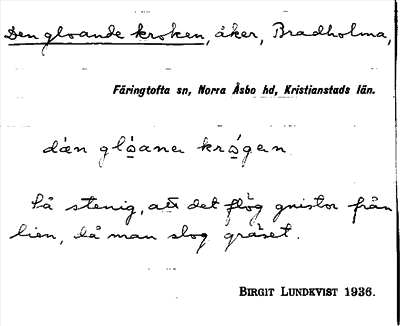 Den gloande kroken, åker, Bradholma,
Färingtofta sn, Norra Åsbo hd, Kristianstads län.
dán glòana krógen
Så stenig, att det flög gnistor från
lien, då man slog gräset.
BIRGIT LUNDKVIST 1936.